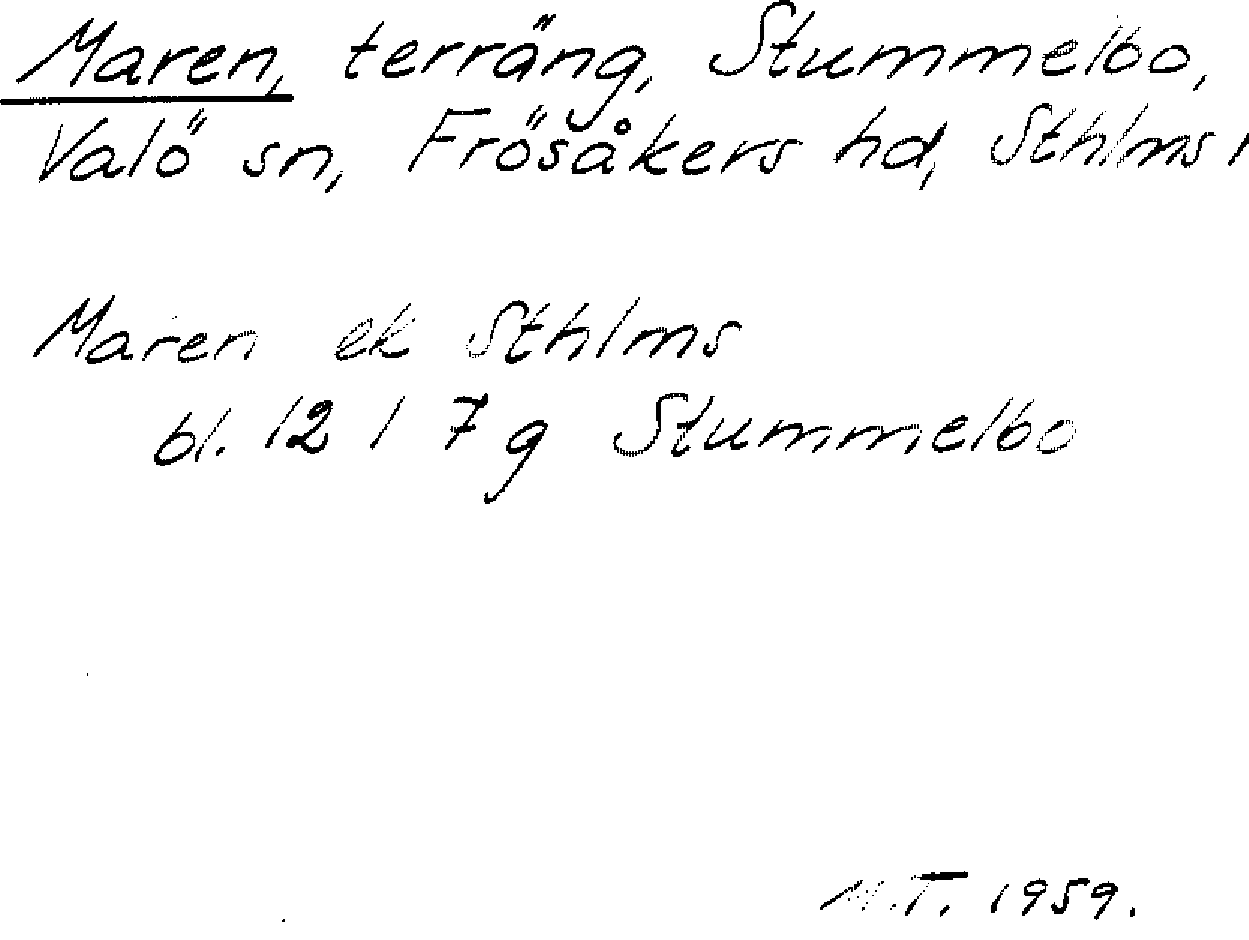 Maren, terräng, Stummelbo,
Valö sn, Frösåkers hd, Sthlms l
Maren ek Sthlms
bl. 12 I 7 g Stummelbo
M.T. 1959.